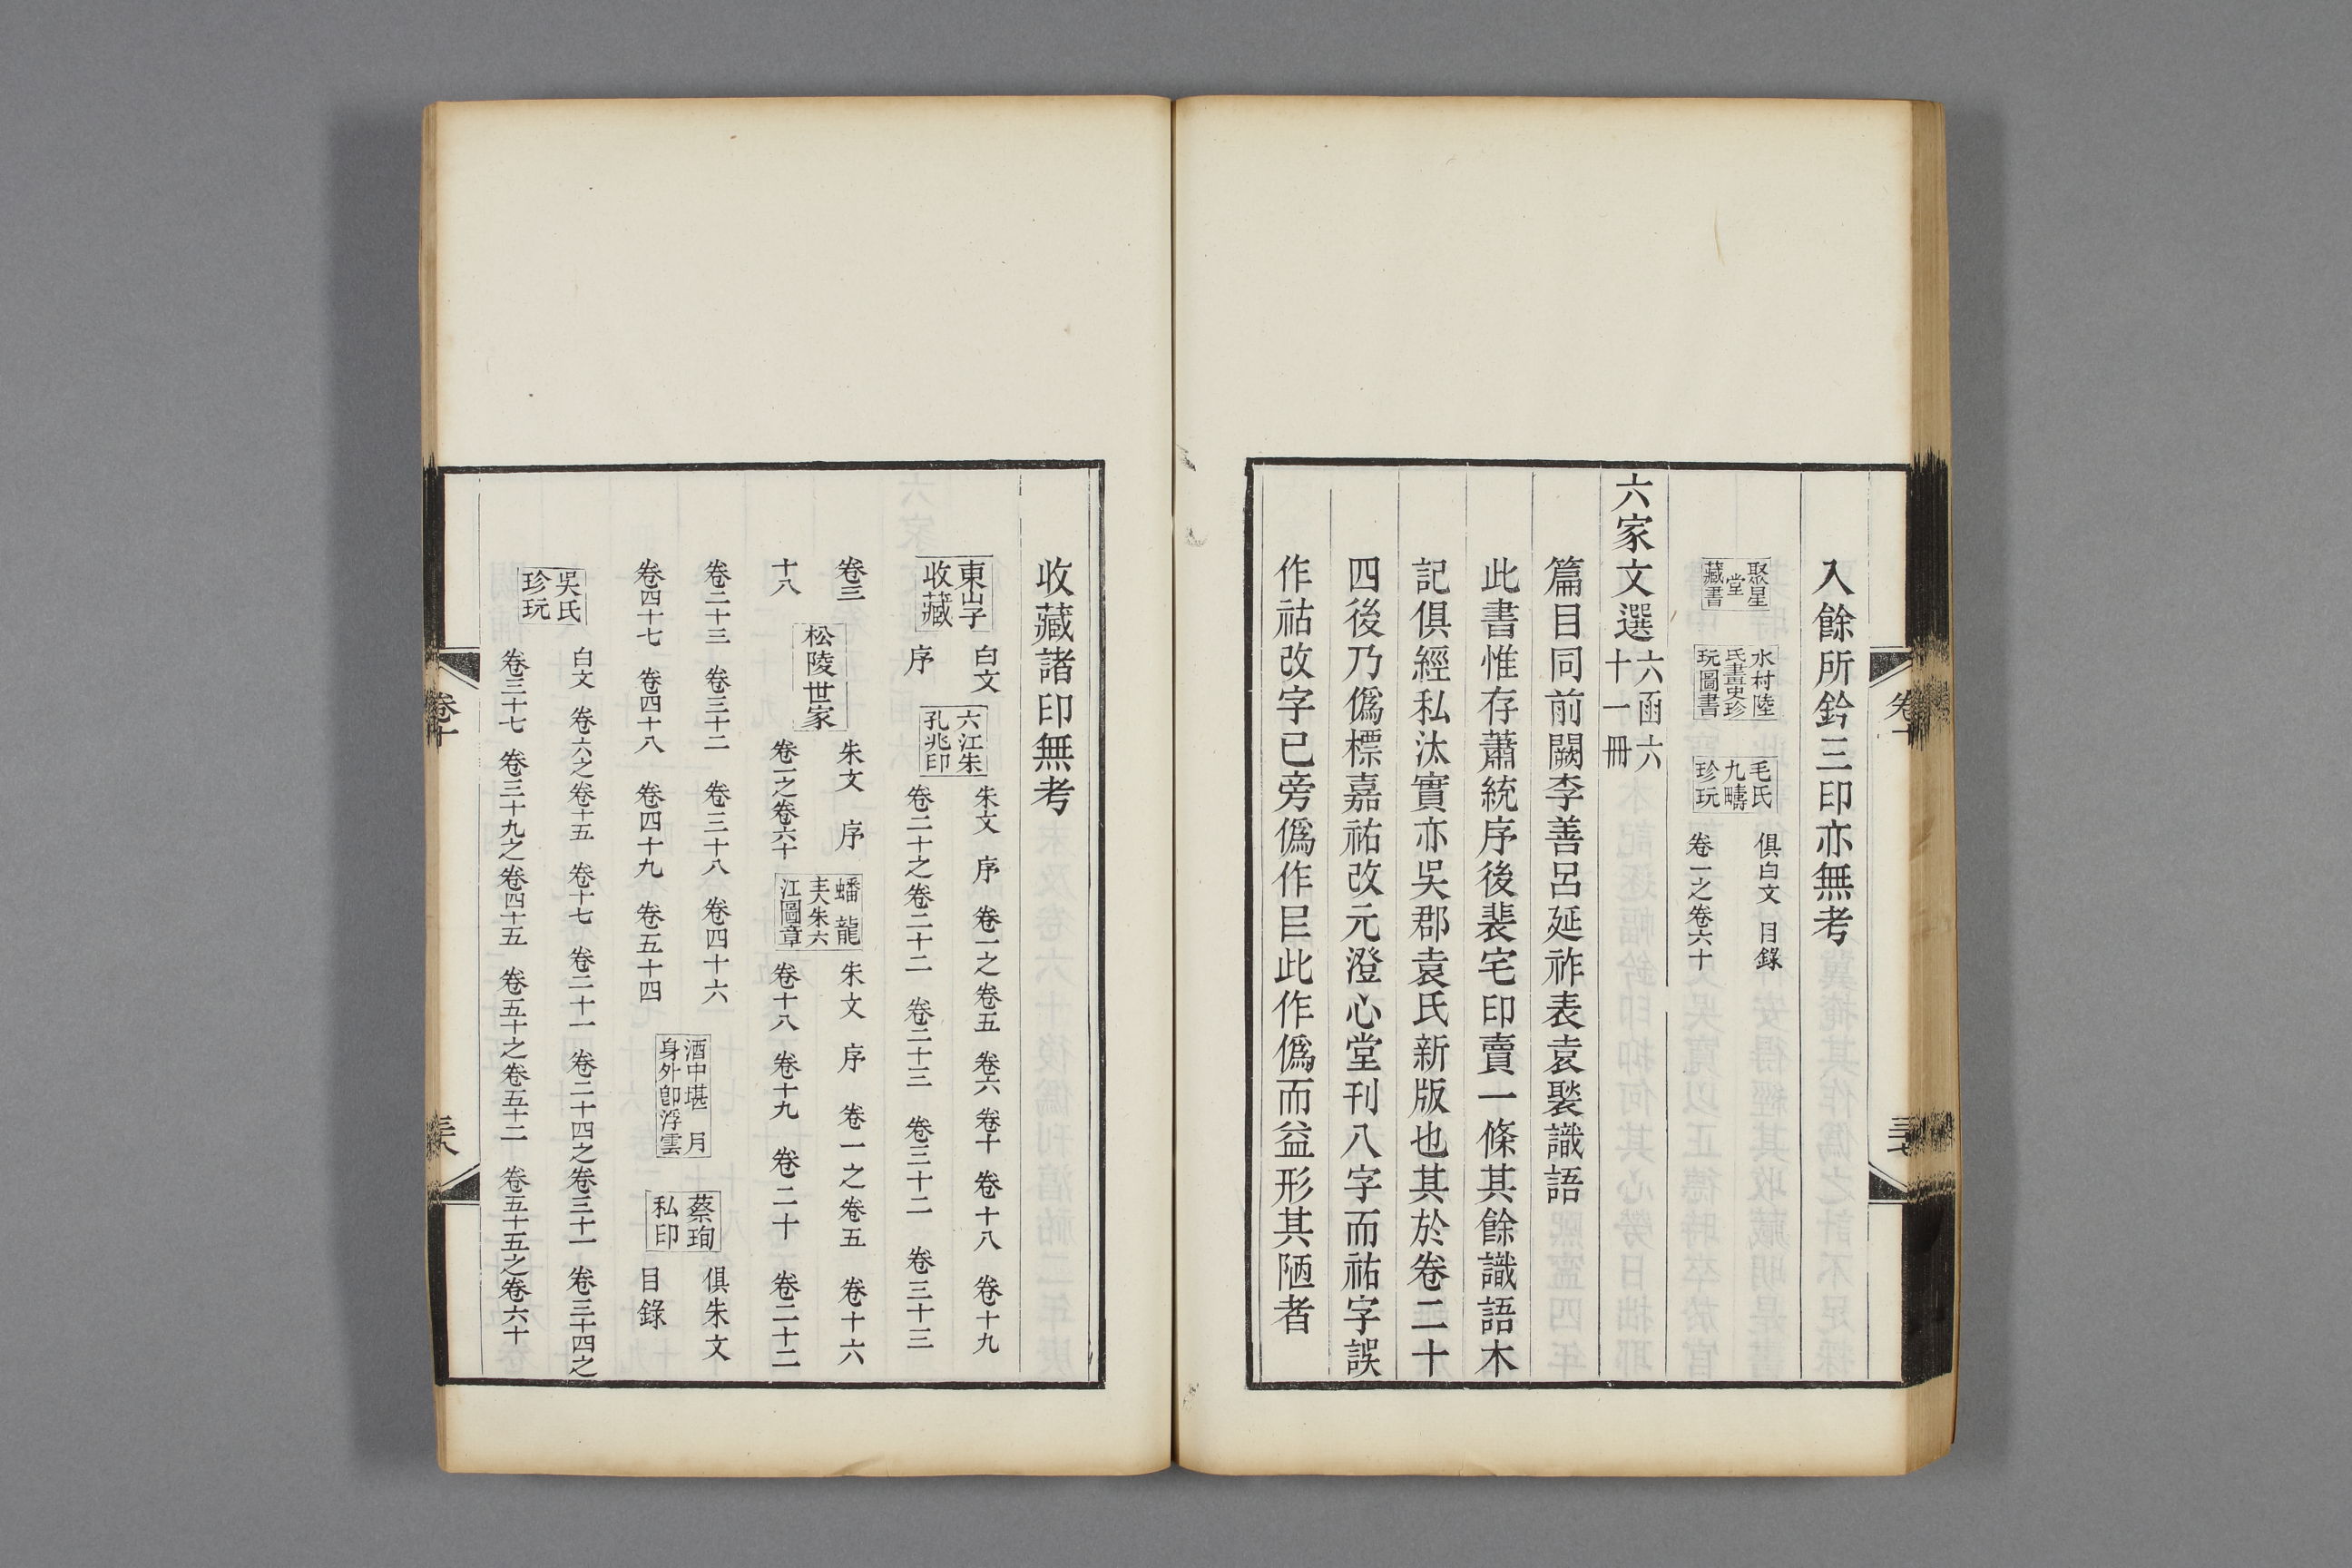 入餘所鈐三印亦無考
聚星
堂
藏書
水村陸
氏畫史珍
玩圖書
毛氏
九疇
珍玩
俱白文 目錄
卷一之卷六十
六家文選
六函六
十一冊
篇目同前闕李善呂延祚表袁褧識語
此書惟存蕭統序後裴宅印賣一條其餘識語木
記俱經私汰實亦吳郡袁氏新版也其於卷二十
四後乃僞標嘉祐改元澄心堂刊八字而祐字誤
作祜改字已旁僞作巨此作僞而益形其陋者
卷十
收藏諸印無考
東山字
收藏
白文
序
六江朱
孔兆印
朱文 序 卷一之卷五 卷六 卷十 卷十八 卷十九
卷二十之卷二十二 卷二十三 卷三十二 卷三十三
卷三
十八
松陵世家
朱文 序
卷一之卷六十
蟠龍
主夫朱六
江圖章
朱文 序 卷一之卷五 卷十六
卷十八 卷十九 卷二十 卷二十二
卷二十三 卷三十二 卷三十八 卷四十六
卷四十七 卷四十八 卷四十九 卷五十四
酒中堪月
身外卽浮雲
蔡珣
私印
俱朱文
目錄
吳氏
珍玩
白文 卷六之卷十五 卷十七 卷二十一 卷二十四之卷三十一 卷三十四之
卷三十七 卷三十九之卷四十五 卷五十之卷五十二 卷五十五之卷六十
卷十